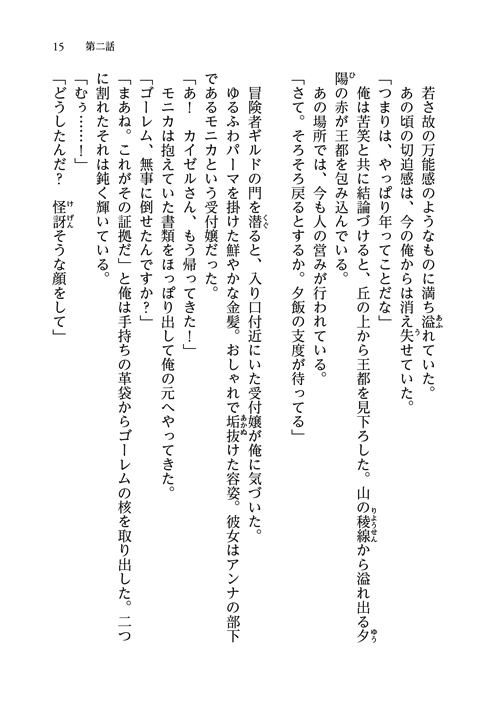 15　第二話
若さ故の万能感のようなものに満ち溢れていた。
あの頃の切迫感は、今の俺からは消え失せていた。
「つまりは、やっぱり年ってことだな」
俺は苦笑と共に結論づけると、丘の上から王都を見下ろした。山の稜線から溢れ出る夕
陽の赤が王都を包み込んでいる。
あの場所では、今も人の営みが行われている。
「さて。そろそろ戻るとするか。夕飯の支度が待ってる」
冒険者ギルドの門を潜ると、入り口付近にいた受付嬢が俺に気づいた。
ゆるふわパーマを掛けた鮮やかな金髪。おしゃれで垢抜けた容姿。彼女はアンナの部下
であるモニカという受付嬢だった。
「あ！　カイゼルさん、もう帰ってきた！」
モニカは抱えていた書類をほっぽり出して俺の元へやってきた。
「ゴーレム、無事に倒せたんですか？」
「まあね。これがその証拠だ」と俺は手持ちの革袋からゴーレムの核を取り出した。二つ
に割れたそれは鈍く輝いている。
「むぅ……！」
「どうしたんだ？　怪訝そうな顔をして」